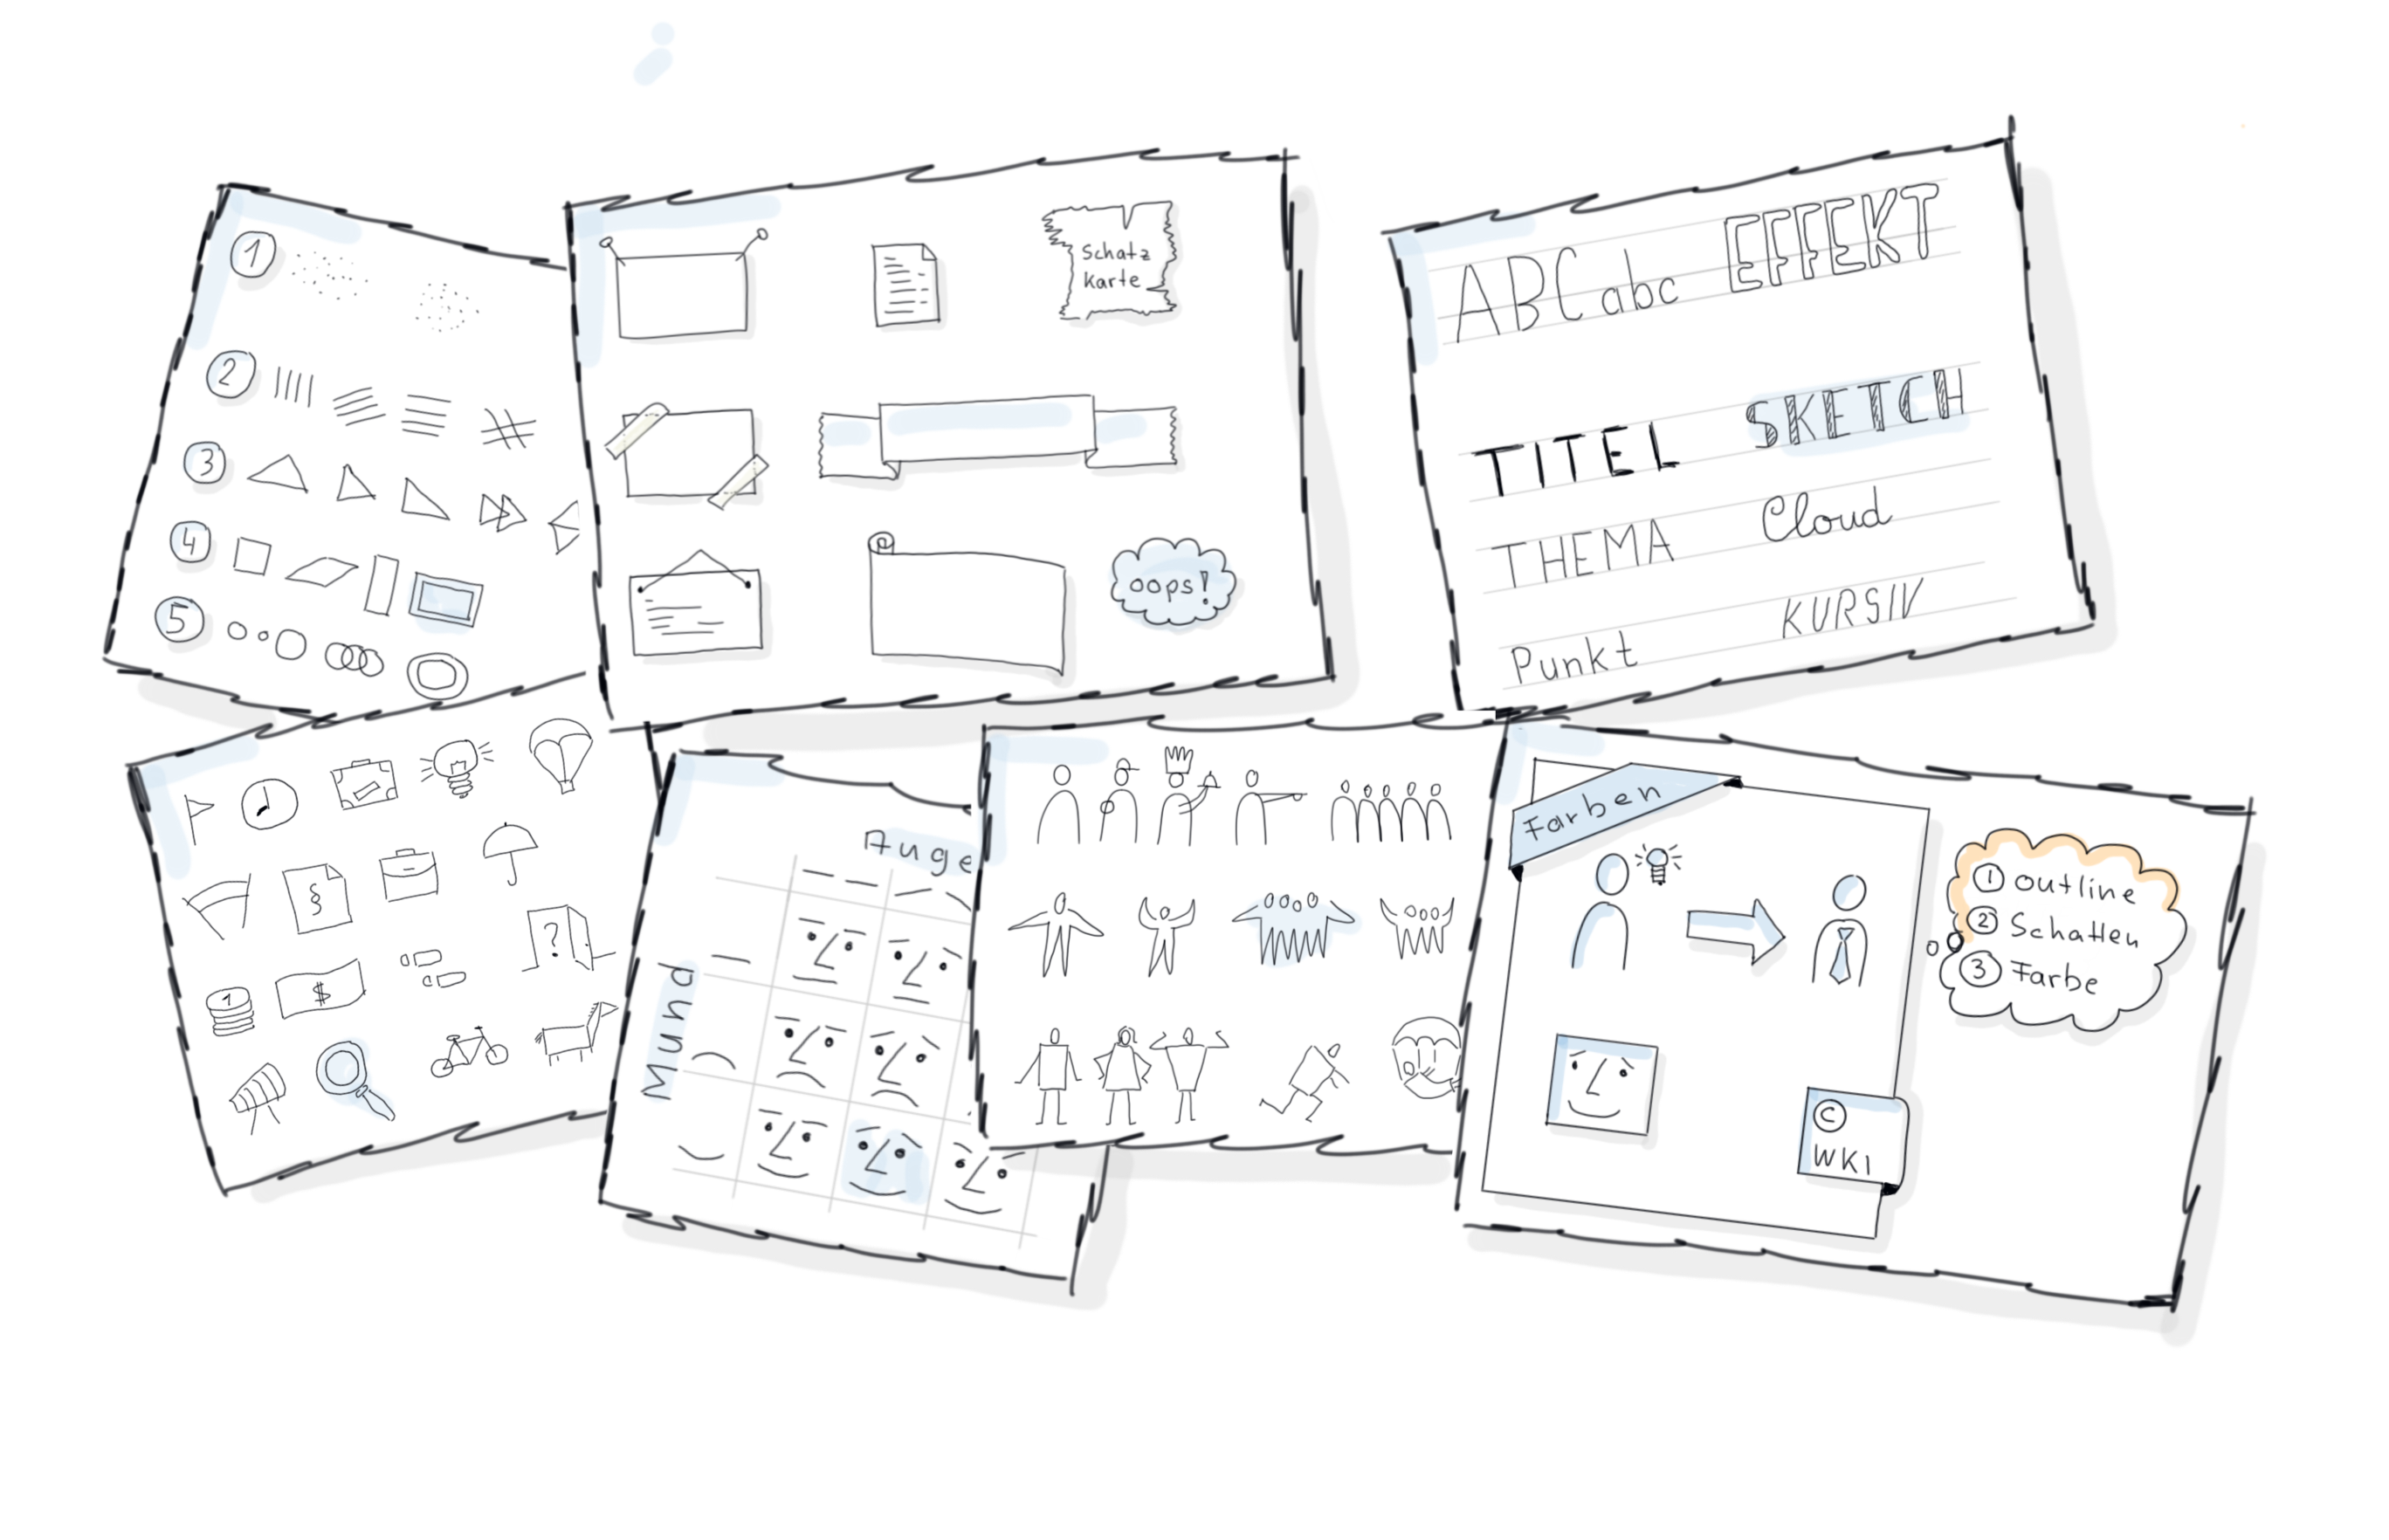 1
2
3
4
5
Schatz
Karte
oops!
ABC abc EFFEKT
TITEL SKETCH
THEMA Cloud
Punkt KURSIV
§
?
1
$
Auge
Mund
Farben
© WKI
1 outline
2 Schatten
3 Farbe